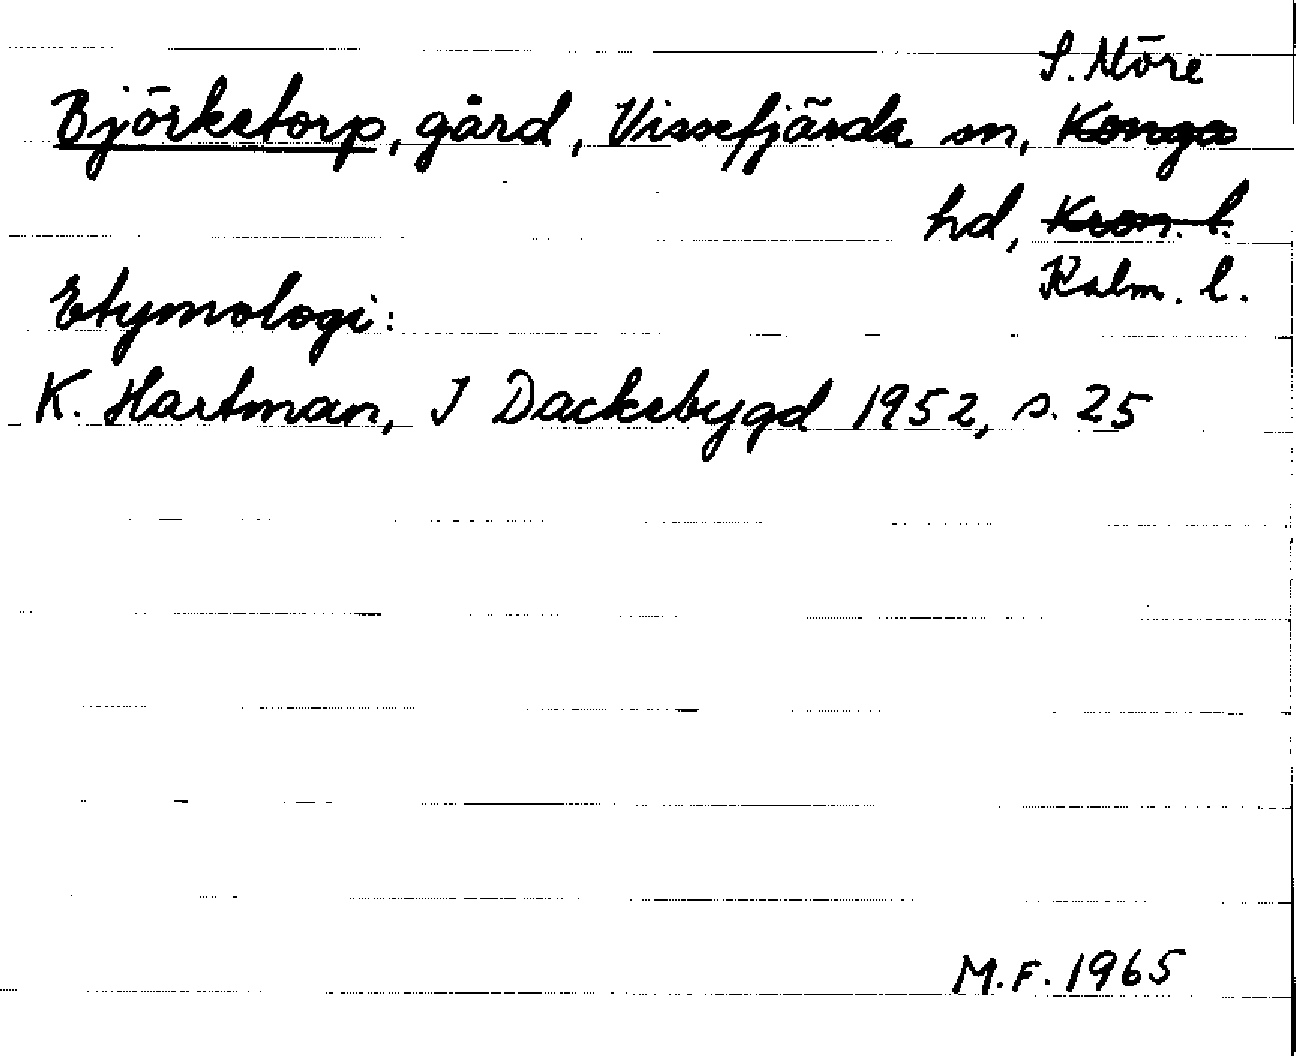 S. Möre
Björkstorp, gård, Vissefjärda sn, Konga
hd, Kron. l.
Kalm. l.
Etymologi:
K. Hartman, I Dackebygd 1952, s. 25
M.F. 1965